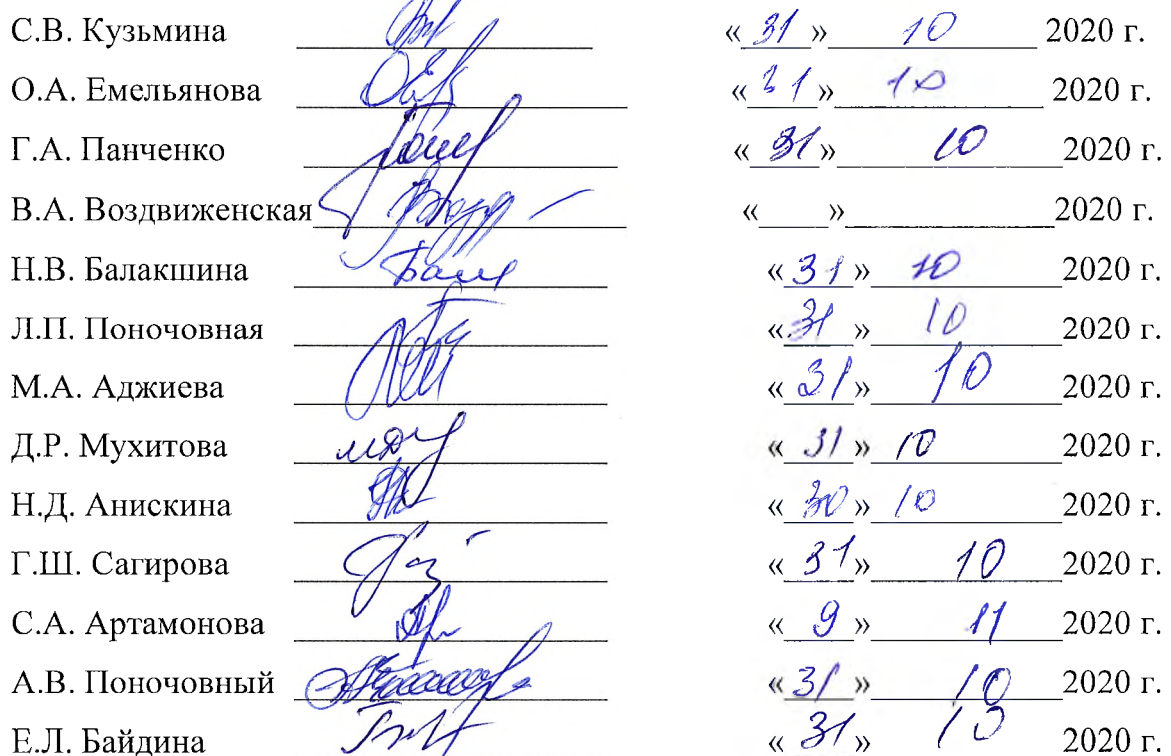 С.В. Кузьмина « 31 » 10 2020 г.
О.А. Емельянова « 31 » 10 2020 г.
Г.А. Панченко « 31 » 10 2020 г.
В.А. Воздвиженская « » 2020 г.
Н.В. Балакшина « 31 » 10 2020 г.
Л.П. Поночовная « 31 » 10 2020 г.
М.А. Аджиева « 31 » 10 2020 г.
Д.Р. Мухитова « 31 » 10 2020 г.
Н.Д. Анискина « 30 » 10 2020 г.
Г.Ш. Сагирова « 31 » 10 2020 г.
С.А. Артамонова « 9 » 11 2020 г.
А.В. Поночовный « 31 » 10 2020 г.
Е.Л. Байдина « 31 » 10 2020 г.